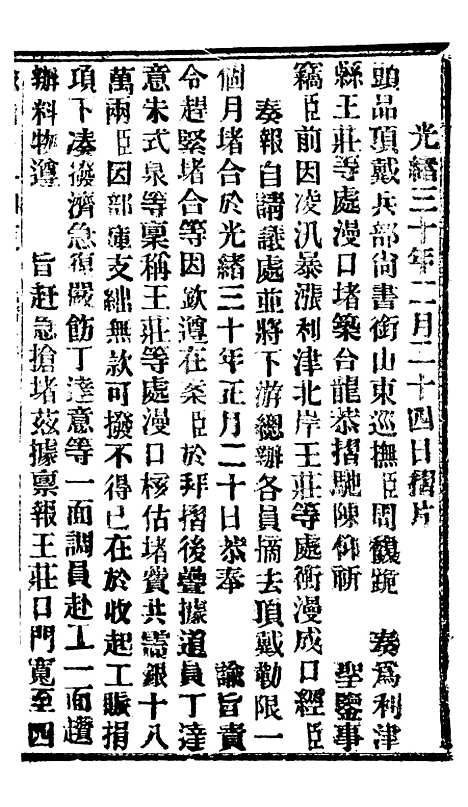 光緒三十年二月二十四日摺片
頭品頂戴兵部尚書銜山東巡撫臣周馥跪　奏爲利津
縣王莊等處漫口堵築合龍恭摺馳陳仰祈　聖鑒事
竊臣前因凌汛暴漲利津北岸王莊等處衝漫成口經臣
奏報自請議處並將下游總辦各員摘去頂戴勒限一
個月堵合於光緒三十年正月二十日恭奉　諭旨責
令趕緊堵合等因欽遵在案臣於拜摺後疊據道員丁達
意朱式泉等稟稱王莊等處漫口核估堵費共需銀十八
萬兩臣因部庫支絀無款可撥不得已在於收起工賑捐
項下湊撥濟急復嚴飭丁達意等一面調員赴工一面趲
辦料物遵　旨赶急搶堵茲據稟報王莊口門寬至四